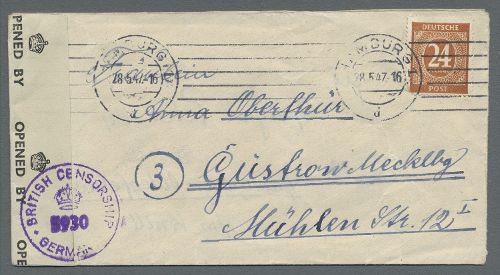 PENED BY
OPENED BY
OPE
HAMBURG
28.5.47.-16
d
HAMBURG
28.5.47.-16
d
DEUTSCHE
24
POST
Anna Oberthür
3
Güstrow Mecklbg
Mühlen Str. 12 I
BRITISH CENSORSHIP
5930
GERMANY